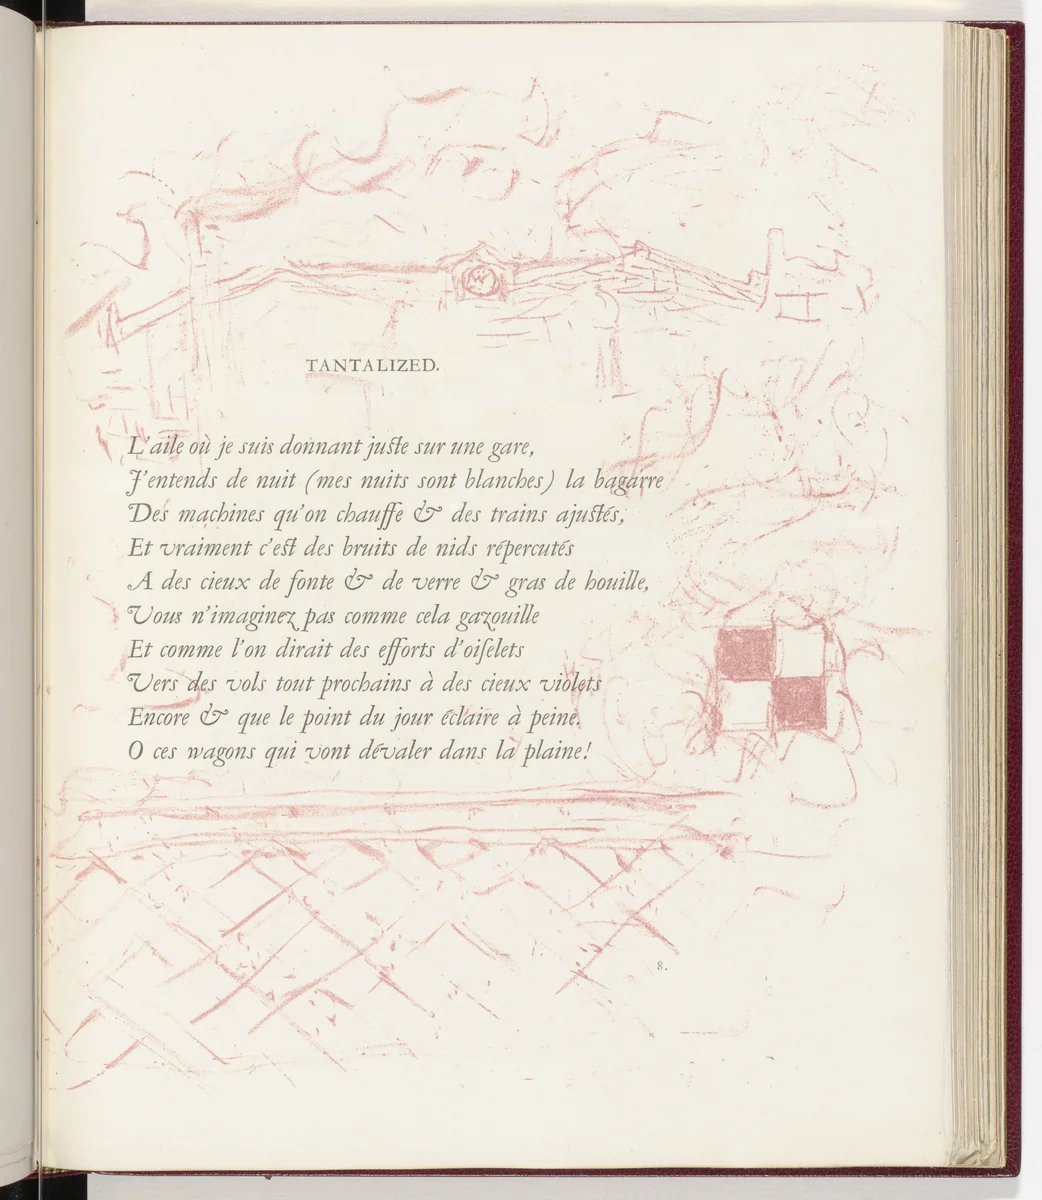 TANTALIZED.
L'aile où je suis donnant juste sur une gare,
J'entends de nuit (mes nuits sont blanches) la bagarre
Des machines qu'on chauffe & des trains ajustés,
Et vraiment c'est des bruits de nids répercutés
A des cieux de fonte & de verre & gras de houille,
Vous n'imaginez pas comme cela gazouille
Et comme l'on dirait des efforts d'oiselets
Vers des vols tout prochains à des cieux violets
Encore & que le point du jour éclaire à peine.
O ces wagons qui vont dévaler dans la plaine!
8.